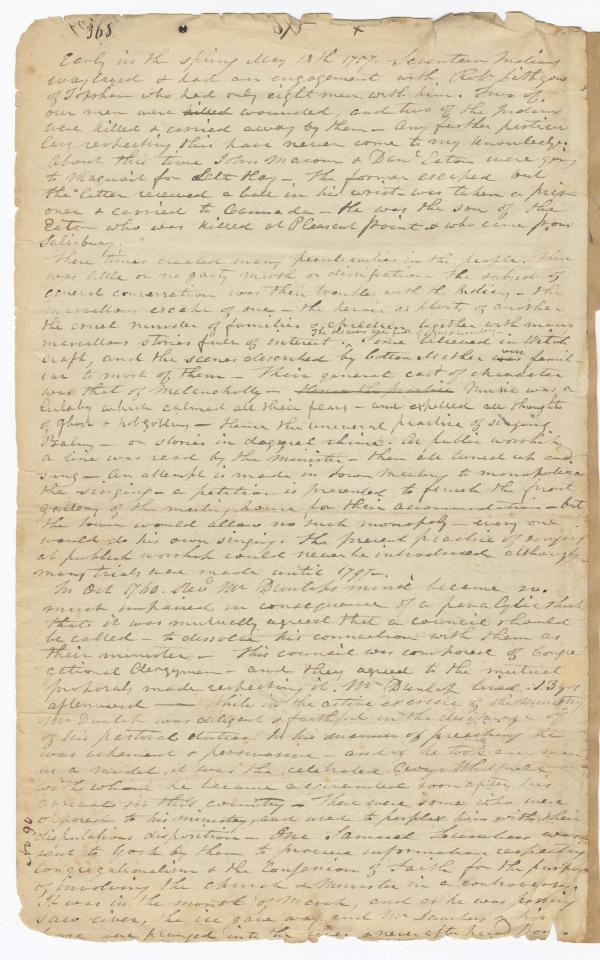 368
Early in the spring May 18th 1757. Seventeen Indians
waylayed & had an engagement with Robt Lithgow
of Topsham who had only eight men with him. Two of
our men were killed wounded, and two of the Indians
were killed & carried away by them – Any further particu
lars respecting this have never come to my knowledge.
About this time John Malcom & Danl Eaton were going
to Maquoit for Salt Hay – The former escaped but
the latter received a ball in his wrist was taken a pris-
oner & carried to Cannada – He was the son of the
Eaton who was killed at Pleasant Point & who came from
Salisbury.
These times created many peculiarities in the people. There
was little or no party mirth or dissipation – The subject of
general conversation was their troubles with the Indians – the
marvellous escape of one – the heroic of another
the cruel murder of families & children, together with many
marvellous stories full of interest. Some believed in Witch
craft, and the scenes described by Cotton Mather were famil-
iar to most of them – Their general cast of character
was that of Melancholly – Hence the practice Music was a
lulaby which calmed all their fears – and expelled all thoughts
of Ghosts & hobgoblins – Hence the universal practice of singing
Psalms – or stories in doggerel rhime. At public worship
a line was read by the minister – then all tuned up and
sung – An attempt is made in town meeting to monopolize
the singing – a petition is presented to finish the front
gallery of the meeting house for their accommodation – but
the town would allow no such monopoly – every one
would do his own singing. The present practice of singing
at publick worship could never be introduced although
many trials were made until 1797 –
In Oct 1760. Revd Mr Dunlaps mind became so
much impaired in consequence of a paralytic shock
that it was mutually agreed that a council should
be called – to dissolve his connection with them as
their minister – This council was composed of Congre
gational Clergymen – and they agreed to the mutual
proposals made respecting it. Mr Dunlap lived
afterward — While in the active exercise of the ministry
Mr Dunlap was diligent & faithful in the discharge of
of his pastoral duties. In his manner of preaching he
was vehement & persuasive – and if he took any man
as a model, it was the celebrated George Whitfield
with whom he became acquainted soon after his
arrival in this country – There were some who were
opposed to his ministry and used to perplex him with their
disputatious disposition – One Samuel was
sent to York by them to procure information respecting
Congregationalism & the Confession of Faith for the purpose
of involving the church & Minister in a controversy.
It was in the month of March, and as he was passing
Saco river, the ice gave way and Mr & his
horse were plunged into the river & never after heard from.